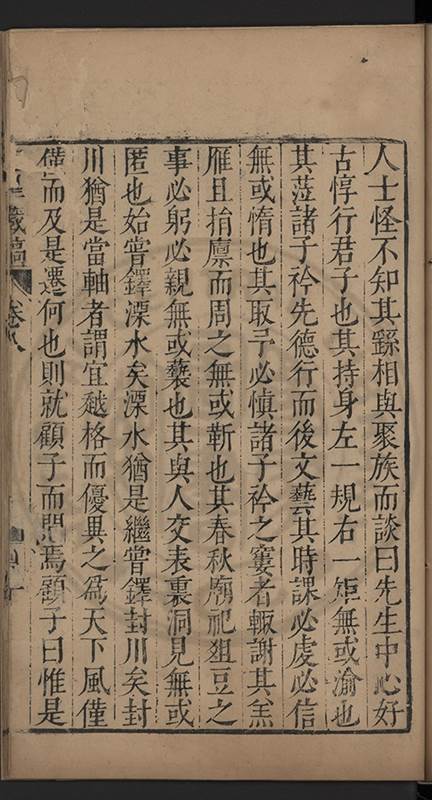 人士怪不知其繇相與聚族而談曰先生中心好
古惇行君子也其持身左一規右一矩無或渝也
其蒞諸子衿先德行而後文藝其時課必虔必信
無或惰也其取予必慎諸子衿之窶者輙謝其羔
雁且捐廩而周之無或靳也其春秋廟祀俎豆之
事必躬必親無或褻也其與人交表裏洞見無或
匿也始嘗鐸溧水矣溧水猶是繼嘗鐸封川矣封
川猶是當軸者謂宜越格而優異之爲天下風僅
僅而及是遷何也則就顧子而問焉顧子曰惟是
藏稿 卷八